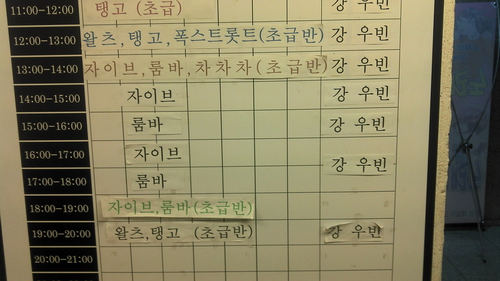 11:00-12:00 탱고 (초급) 강 우빈
12:00-13:00 왈츠,탱고,폭스트롯트(초급반) 강 우빈
13:00-14:00 자이브,룸바,차차차(초급반) 강 우빈
14:00-15:00 자이브 강 우빈
15:00-16:00 룸바 강 우빈
16:00-17:00 자이브 강 우빈
17:00-18:00 룸바
18:00-19:00 자이브,룸바(초급반)
19:00-20:00 왈츠,탱고 (초급반) 강 우빈
20:00-21:00